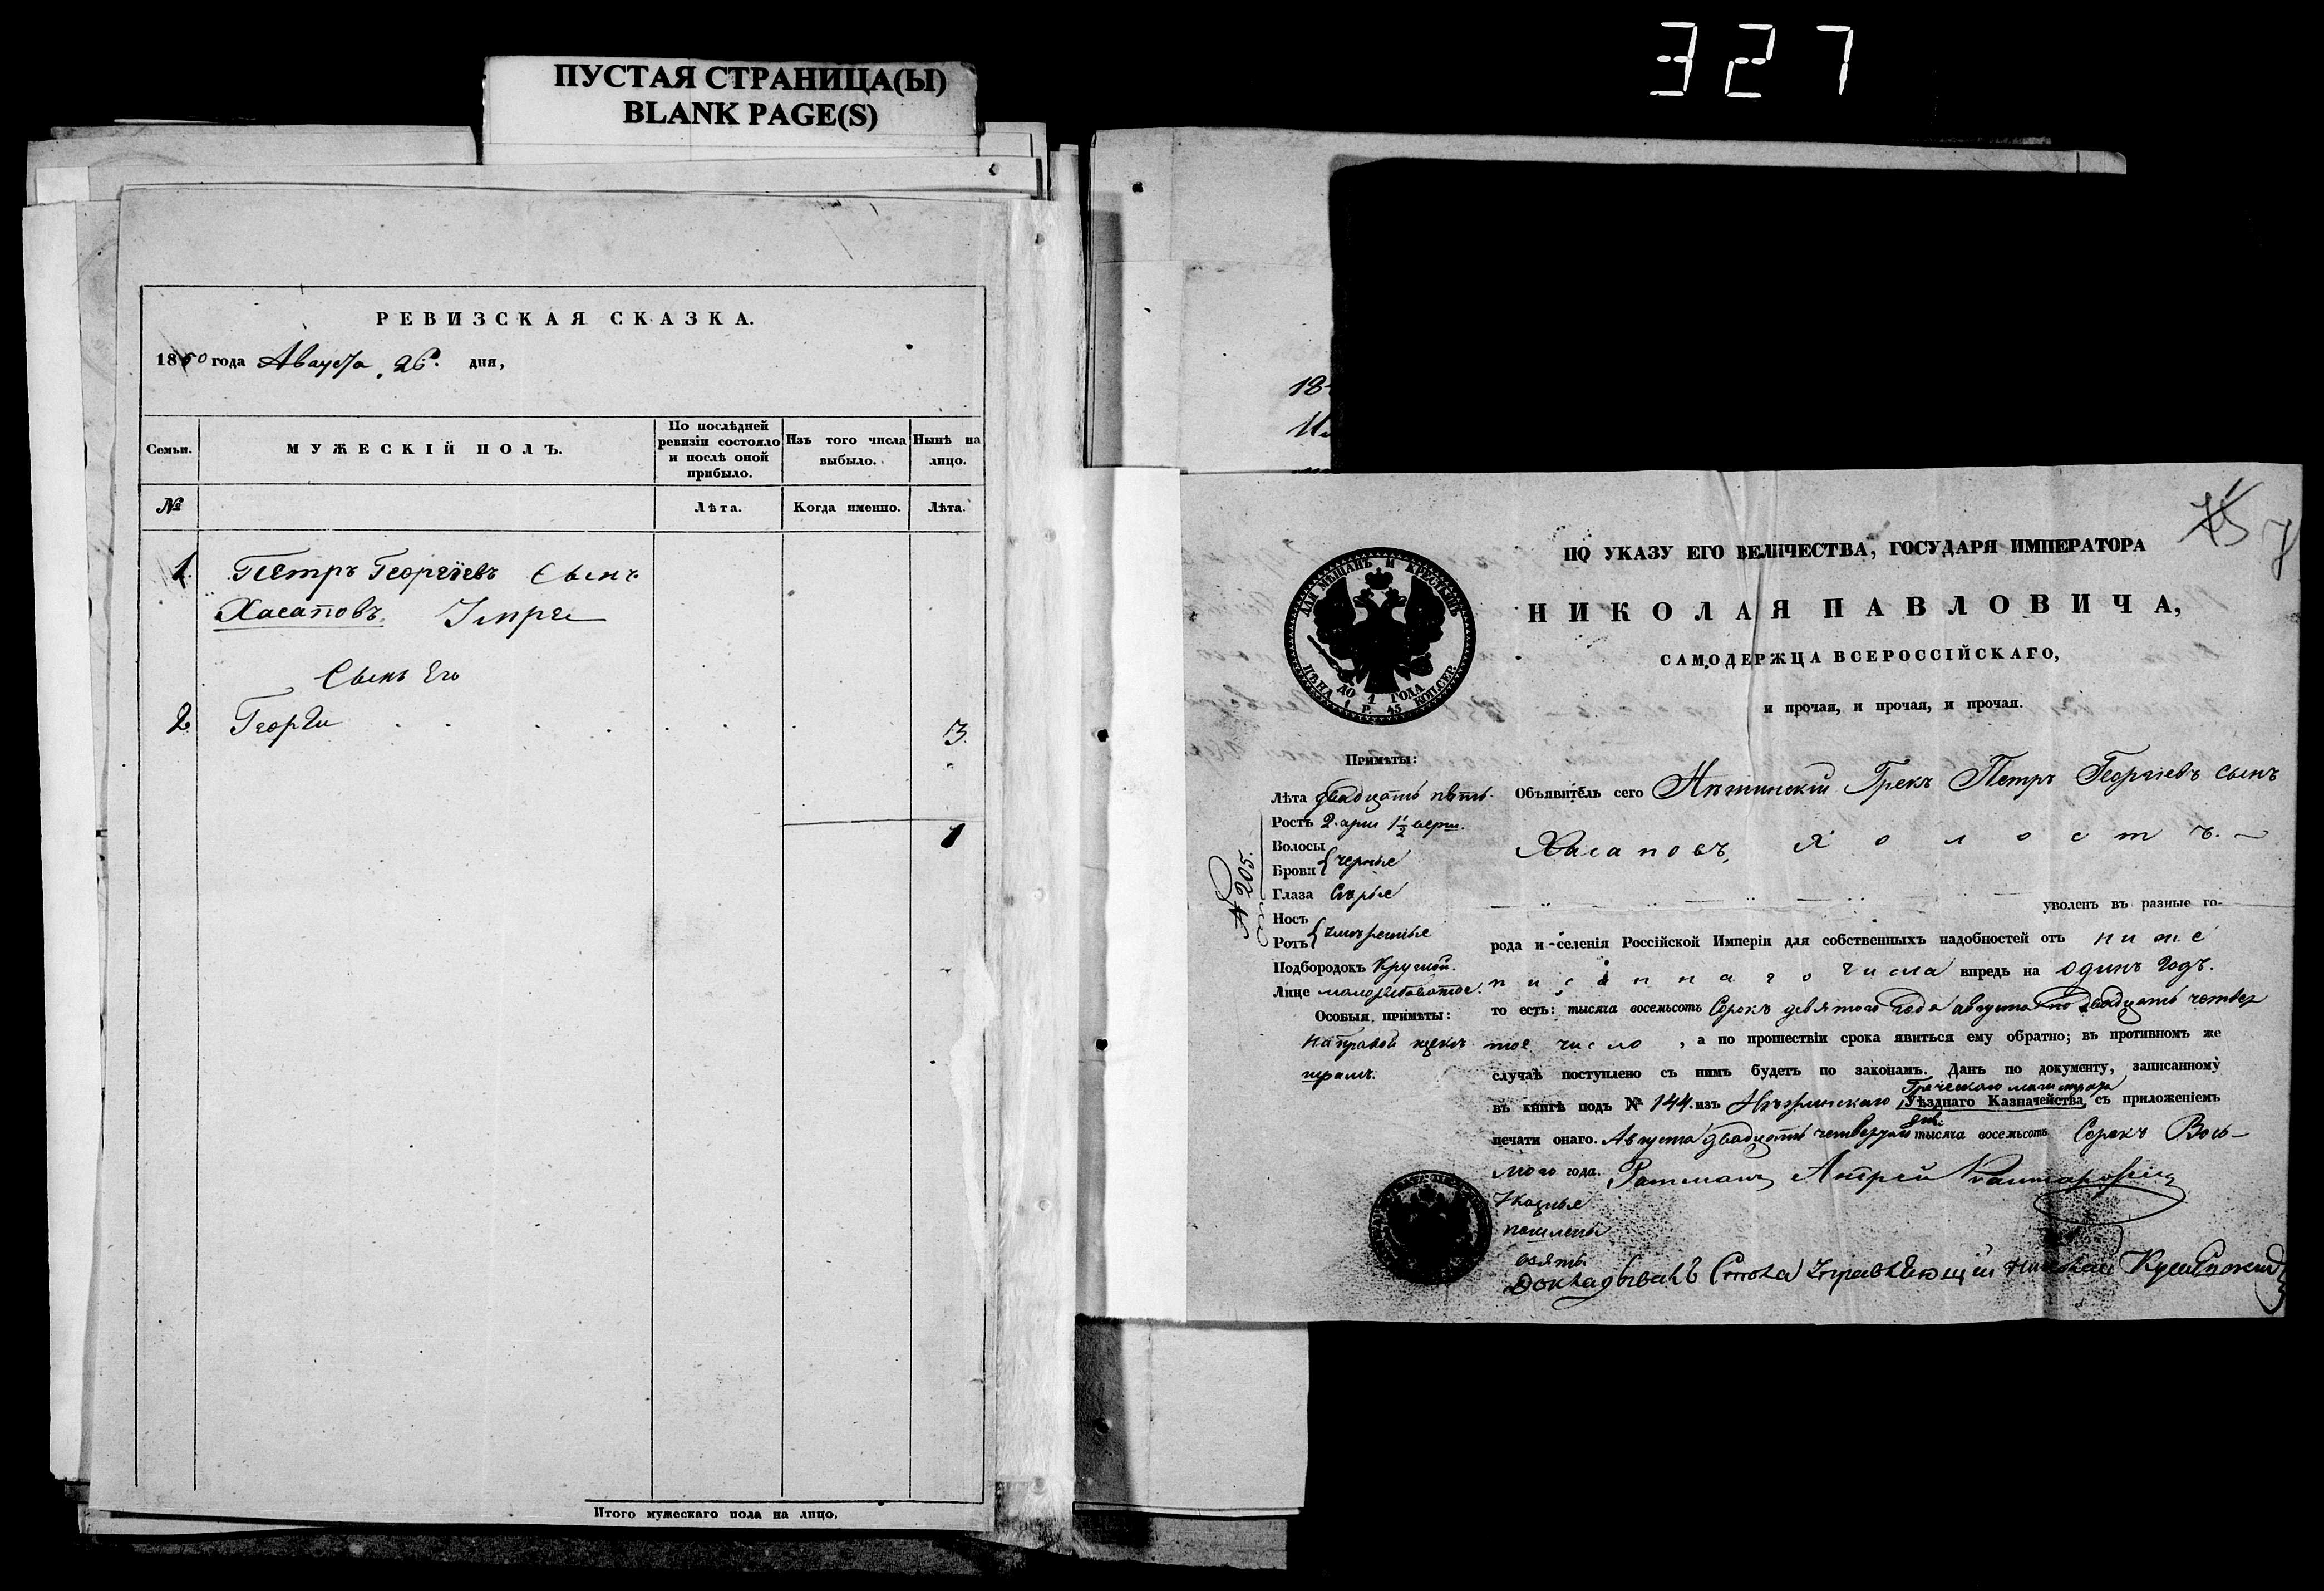 ПУСТАЯ СТРАНИЦА(Ы)
BLANK PAGE(S)
327
РЕВИЗСКАЯ СКАЗКА.
1850 года Августа 26. дня,
Семьи.
МУЖЕСКІЙ ПОЛЪ.
По послѣдней
ревизіи состояло
и послѣ оной
прибыло.
Изъ того числа
выбыло.
Нынѣ на
лицо.
№
Лѣта.
Когда именно.
Лѣта.
1. Петръ Георгіевъ Сынъ
Хасаповъ. Умре
Сынъ Его
2 Георги 3.
1
Итого мужескаго пола на лицо,
18
75 7
ПО УКАЗУ ЕГО ВЕЛИЧЕСТВА, ГОСУДАРЯ ИМПЕРАТОРА
НИКОЛАЯ ПАВЛОВИЧА,
САМОДЕРЖЦА ВСЕРОССІЙСКАГО,
и прочая, и прочая, и прочая.
ДЛЯ МѢЩАНЪ И КРЕСТЬЯНЪ
ДО 1 ГОДА
ЦѢНА 1 Р. 45 КОП. СЕР.
№ 205.
Примѣты:
Лѣта двадцать пять.
Ростъ 2. арш 1½ верш.
Волосы
Брови { черные
Глаза Сѣрые
Носъ
Ротъ { умѣренные
Подбородокъ Круглой.
Лице малорябоватое.
Особыя примѣты:
На правой щекѣ
шрамъ.
Объявитель сего Нѣжинскій Грекъ Петръ Георгіевъ сынъ
Хасаповъ, Холостъ.
уволенъ въ разные го-
рода и селенія Россійской Имперіи для собственныхъ надобностей отъ ниже
писаннаго числа впредь на одинъ годъ.
то есть: тысяча восемьсотъ Сорокъ девятого года августа по двадцать четвер
тое число , а по прошествіи срока явиться ему обратно; въ противномъ же
случаѣ поступлено съ нимъ будетъ по законамъ. Данъ по документу, записанному
Греческаго магистрата
въ книгѣ подъ № 144. изъ Нѣжинскаго Уѣзднаго Казначейства, съ приложеніемъ
дня
печати онаго. Августа двадцать четвертого тысяча восемьсотъ Сорокъ Вось-
мого года. Ратманъ Андрей
Указные
пошлены
взяты
Докладывалъ Стола Управляющій Николай